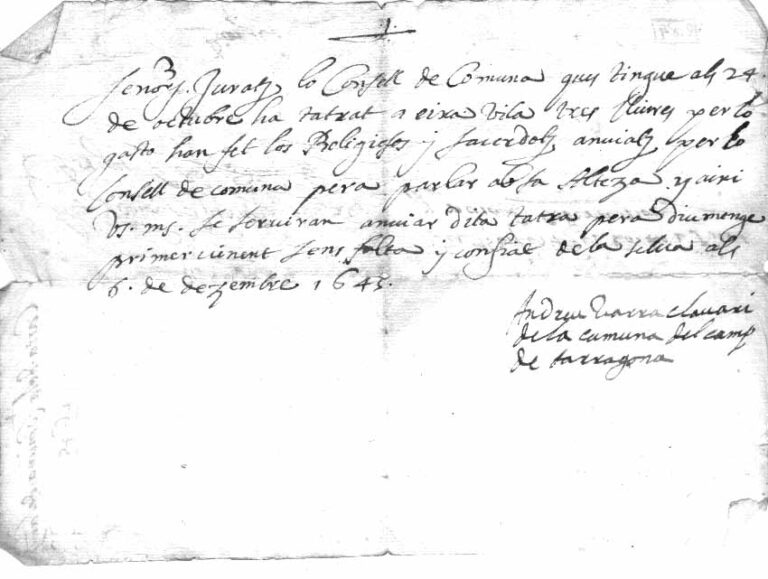 Señors Juratz lo Consell de Comuna ques tingue als 24
de octubre ha tatrat a eixa vila tres lliures per lo
gasto han fet los Religiosos y sacerdotz anviatz per lo
Consell de comuna pera parlar ab sa Alteza y aixi
Vs. ms. se serviran anviar dita tatra pera diumenge
primer vinent sens falta y confiat de la selva als
6. de dezembre 1645.
Andreu clavari
de la comuna del camp
de tarragona